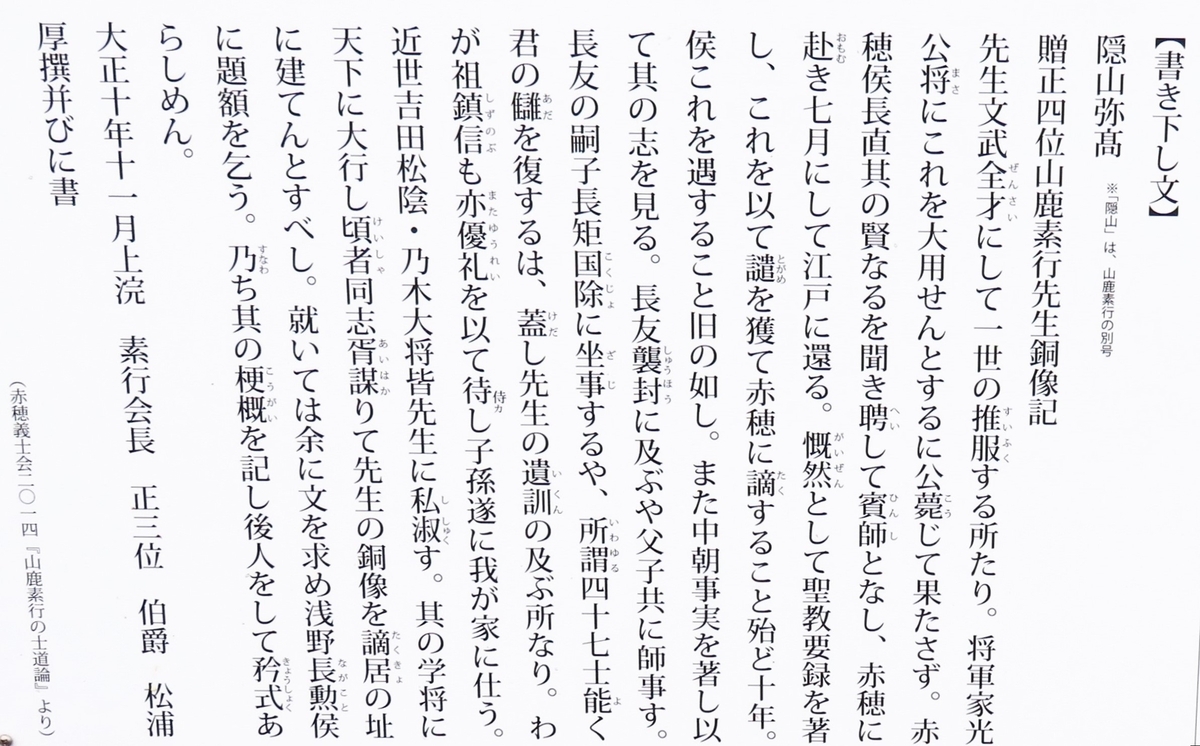 【書き下し文】
隠山弥高 ※「隠山」は、山鹿素行の別号
贈正四位山鹿素行先生銅像記
先生文武全才にして一世の推服する所たり。将軍家光
公将にこれを大用せんとするに公薨じて果たさず。赤
穂侯長直其の賢なるを聞き聘して賓師となし、赤穂に
赴き七月にして江戸に還る。慨然として聖教要録を著
し、これを以て譴を獲て赤穂に謫すること殆ど十年。
侯これを遇すること旧の如し。また中朝事実を著し以
て其の志を見る。長友襲封に及ぶや父子共に師事す。
長友の嗣子長矩国除に坐事するや、所謂四十七士能く
君の讎を復するは、蓋し先生の遺訓の及ぶ所なり。わ
が祖鎮信も亦優礼を以て待し子孫遂に我が家に仕う。
近世吉田松陰・乃木大将皆先生に私淑す。其の学将に
天下に大行し頃者同志胥謀りて先生の銅像を謫居の址
に建てんとすべし。就いては余に文を求め浅野長勲侯
に題額を乞う。乃ち其の梗概を記し後人をして矜式あ
らしめん。
大正十年十一月上浣 素行会長 正三位 伯爵 松浦
厚撰并びに書
(赤穂義士会二〇一四『山鹿素行の士道論』より)